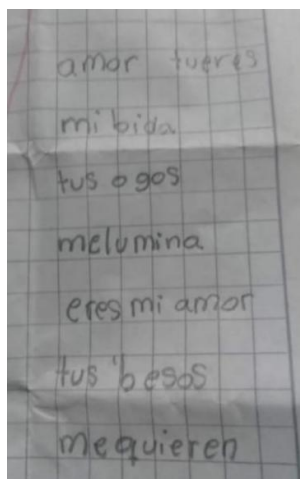 amor tueres
mi bida
tus ogos
melumina
eres mi amor
tus besos
mequieren